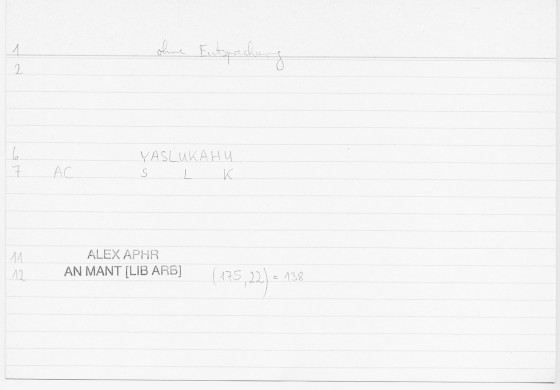 1 ohne Entsprechung
2
6 YASLUKAHU
7 AC S L K
11 ALEX APHR
12 AN MANT [LIB ARB] (175,22) = 138